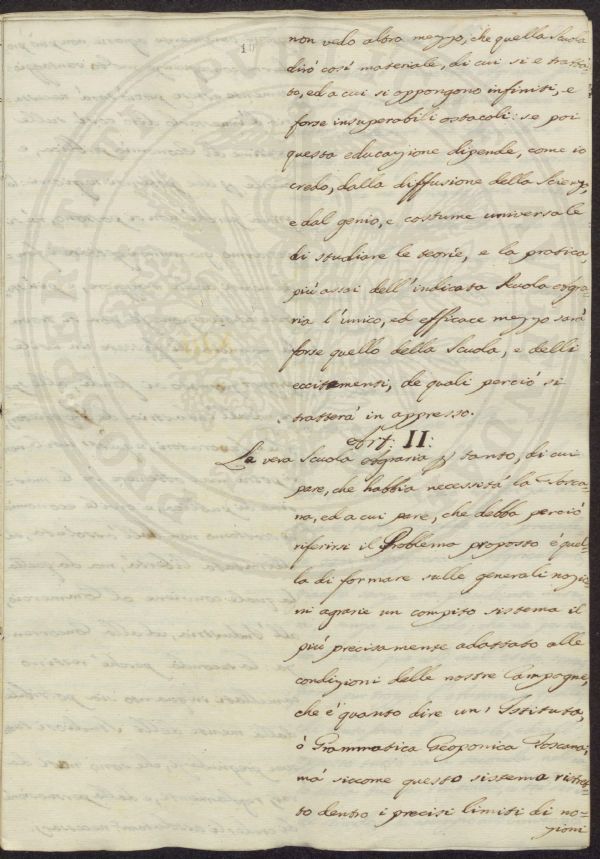 10
non vedo altro mezzo, che quella Scuola
dirò così materiale, di cui si e tratta-
to, ed a cui si oppongono infiniti, e
forse insuperabili ostacoli: se poi
questa educazione dipende, come io
credo, dalla diffusione della Scienza,
e dal genio, e costume universale
di studiare le teorie, e la pratica
più assai dell'indicata Scuola Agra-
ria l'unico, ed efficace mezzo sarà
forse quello della Scuola, e delli
eccitamenti, de quali perciò si
tratterà in appresso.
Art: II:
La vera Scuola Agraria tanto, di cui
pare, che habbia necessità la Tosca-
na, ed a cui pare, che debba perciò
riferirsi il Problema proposto è quel-
la di formare sulle generali nozio-
ni agrarie un compito sistema il
più precisamente adattato alle
condizioni delle nostre Campagne,
che è quanto dire un' Istituta,
ò Grammatica Geoponica Toscana;
mà siccome questo sistema ristret-
to dentro i precisi limiti di no-
zioni